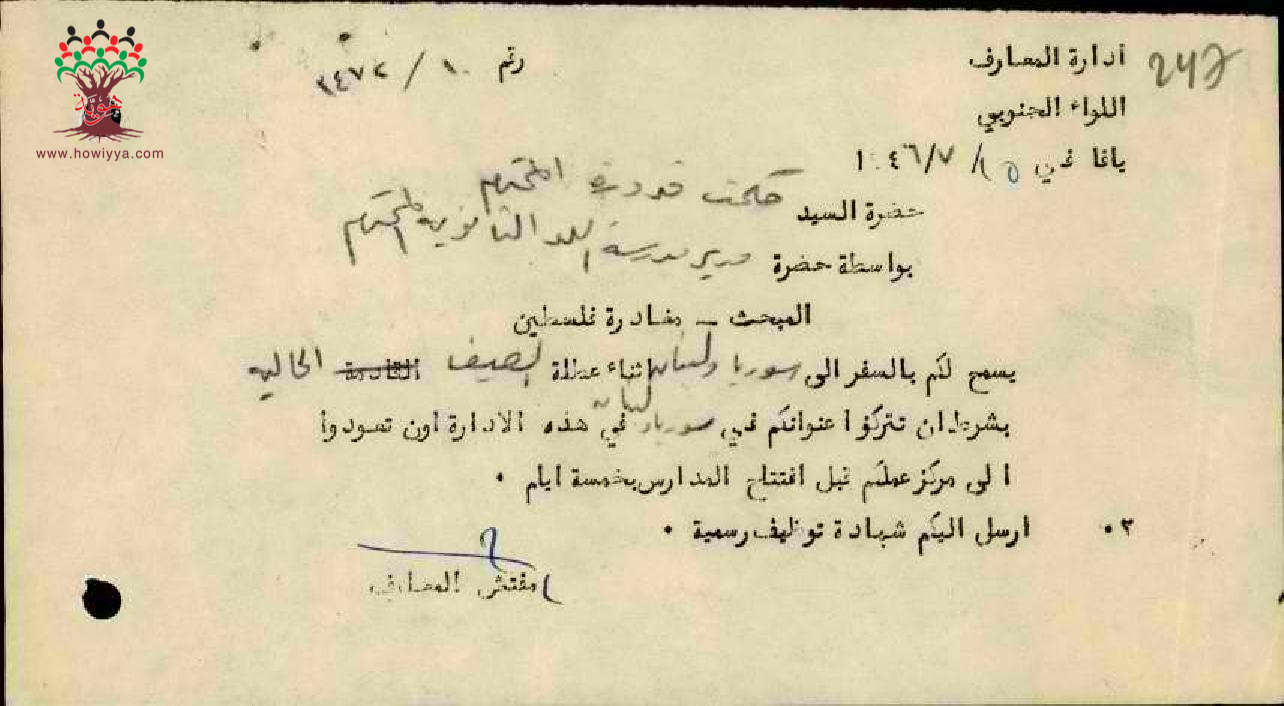 247
أدارة المعارف
رقم ١٠ / ٣٤٧٢
اللواء الجنوبي
يافا في ١٥/ ٧/ ١٩٤٦
حضرة السيد حكمت قدورة المحترم
بواسطة حضرة مدير مدرسة اللد الثانوية المحترم
المبحث ــ مغادرة فلسطين
يسمح لكم بالسفر الى سوريا ولبنان اثناء عطلة الصيف القادمة الحالية
بشرط ان تتركوا عنوانكم في سوريا ولبنان في هذه الادارة وان تعودوا
الى مركز عملكم قبل افتتاح المدارس بخمسة ايام ٠
٢٠ ارسل اليكم شهادة توظيف رسمية ٠
مفتش المعارف
هوية
www.howiyya.com